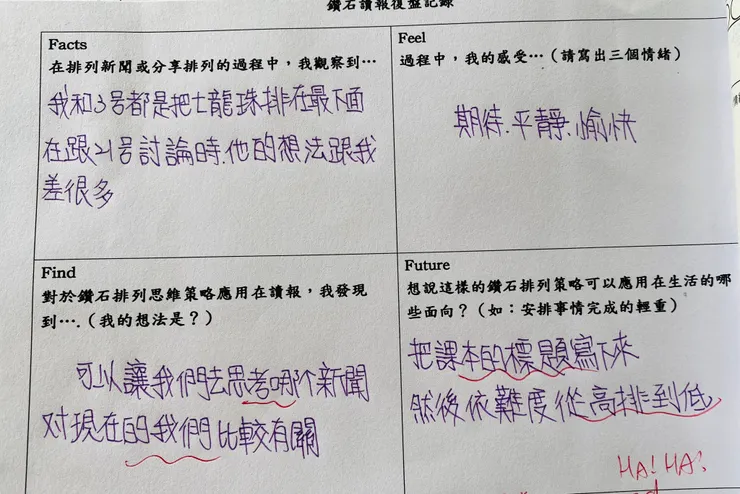 鑽石讀報復盤記錄
Facts
在排列新聞或分享排列的過程中，我觀察到…
我和3号都是把七龍珠排在最下面
在跟21号討論時.他的想法跟我
差很多
Feel
過程中，我的感受…（請寫出三個情緒）
期待.平靜.愉快
Find
對於鑽石排列思維策略應用在讀報，我發現
到….（我的想法是？）
可以讓我們去思考哪个新聞
对現在的我們比較有關
Future
想說這樣的鑽石排列策略可以應用在生活的哪
些面向？（如：安排事情完成的輕重）
把課本的標題寫下來
然後依難度從高排到低
HA! HA!